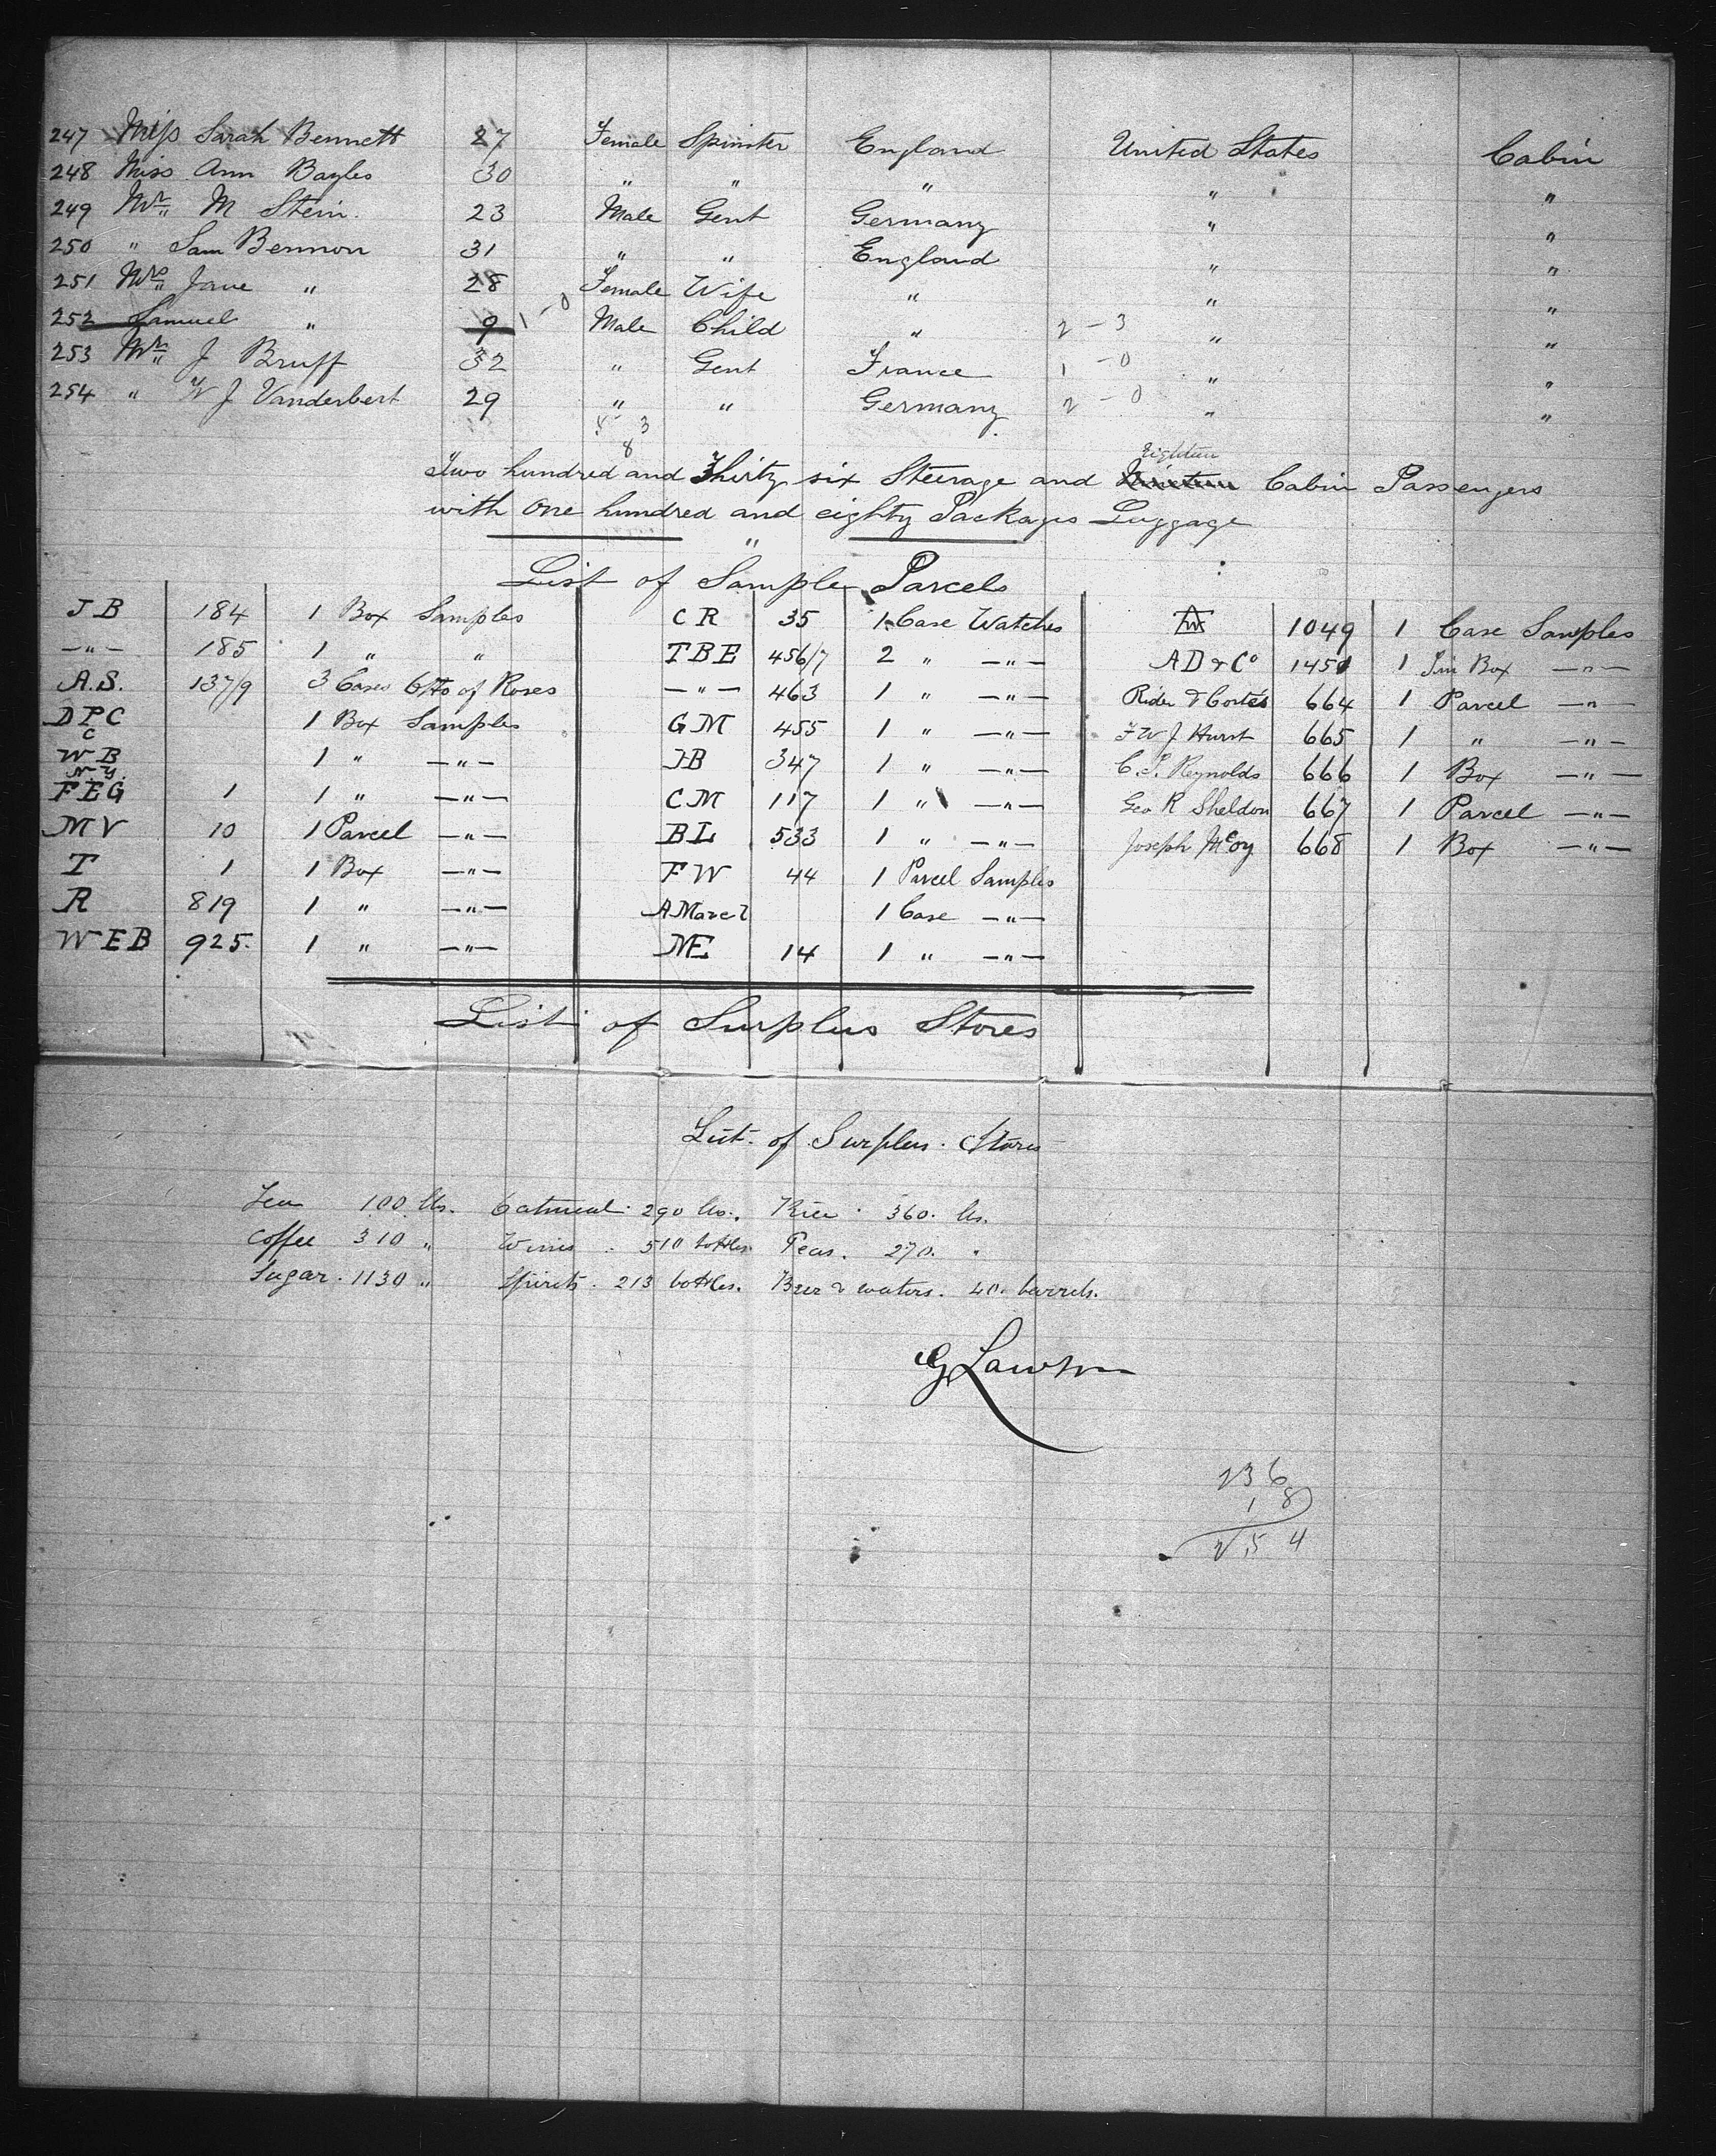 247 Miss Sarah Bennett 27 Female Spinster England United States Cabin
248 Miss Ann Bayles 30 " " " " "
249 Mr M Stein. 23 Male Gent Germany " "
250 " Sam Bennon 31 " " England " "
251 Mrs Jane " 28 Female Wife " " "
252 Samuel " 9 1-0 Male Child " 2-3 " "
253 Mr J Bruff 32 " Gent France 1-0 " "
254 " W J Vanderbert 29 " " Germany 2-0 " "
5 3
8
Eighteen
Two hundred and Thirty six Steerage and Nineteen Cabin Passengers
with One hundred and eighty Packages Luggage
"
List of Sample Parcels
J B 184 1 Box Samples C R 35 1 Case Watches W 1049 1 Case Samples
—"— 185 1 " " T B E 456/7 2 " —"— A D & Co 1450 1 Tin Box —"—
A.S. 137/9 3 Cases Otto of Roses —"— 463 1 " —"— Rider & Cortes 664 1 Parcel —"—
D P C 1 Box Samples G M 455 1 " —"— F W J Hurst 665 1 " —"—
C
W B 1 " —"— J B 347 1 " —"— C. S. Reynolds 666 1 Box —"—
N Y.
F E G 1 1 " —"— C M 117 1 " —"— Geo R Sheldon 667 1 Parcel —"—
M V 10 1 Parcel —"— B L 533 1 " —"— Joseph McCoy 668 1 Box —"—
T 1 1 Box —"— F W 44 1 Parcel Samples
R 819 1 " —"— A Marcl 1 Case —"—
W E B 925. 1 " —"— NE 14 1 " —"—
List of Surplus Stores
List of Surplus Stores
Tea 100 lbs. Oatmeal 290 lbs. Rice 360. lbs.
Coffee 310 " Wines 510 bottles Peas. 270. "
Sugar. 1130 " Spirits. 213 bottles. Beer & waters. 40. barrels.
G Lawson
236
18
254